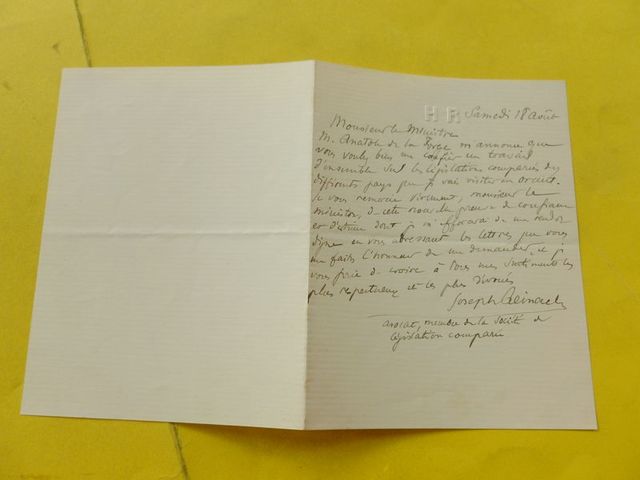 HR Samedi 18 août
Monsieur le Ministre
M. Anatole de la Forge m'annonce que
vous voulez bien me confier un travail
d'ensemble sur les législations comparées des
différents pays que je vais visiter en Orient.
Je vous remercie vivement, monsieur le
ministre, de cette nouvelle preuve de confiance
et d'estime dont je m'efforcerai de me rendre
digne en vous adressant les lettres que vous
me faites l'honneur de me demander, et je
vous prie de croire à mes sentiments les
plus respectueux et les plus dévoués
Joseph Reinach
avocat, membre de la Société de
législation comparée